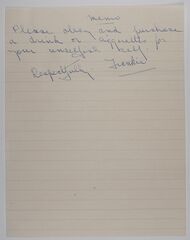 memo
Please obey and purchase
a drink or cigarette for
your unselfish self.
Respectfully.
Frankie